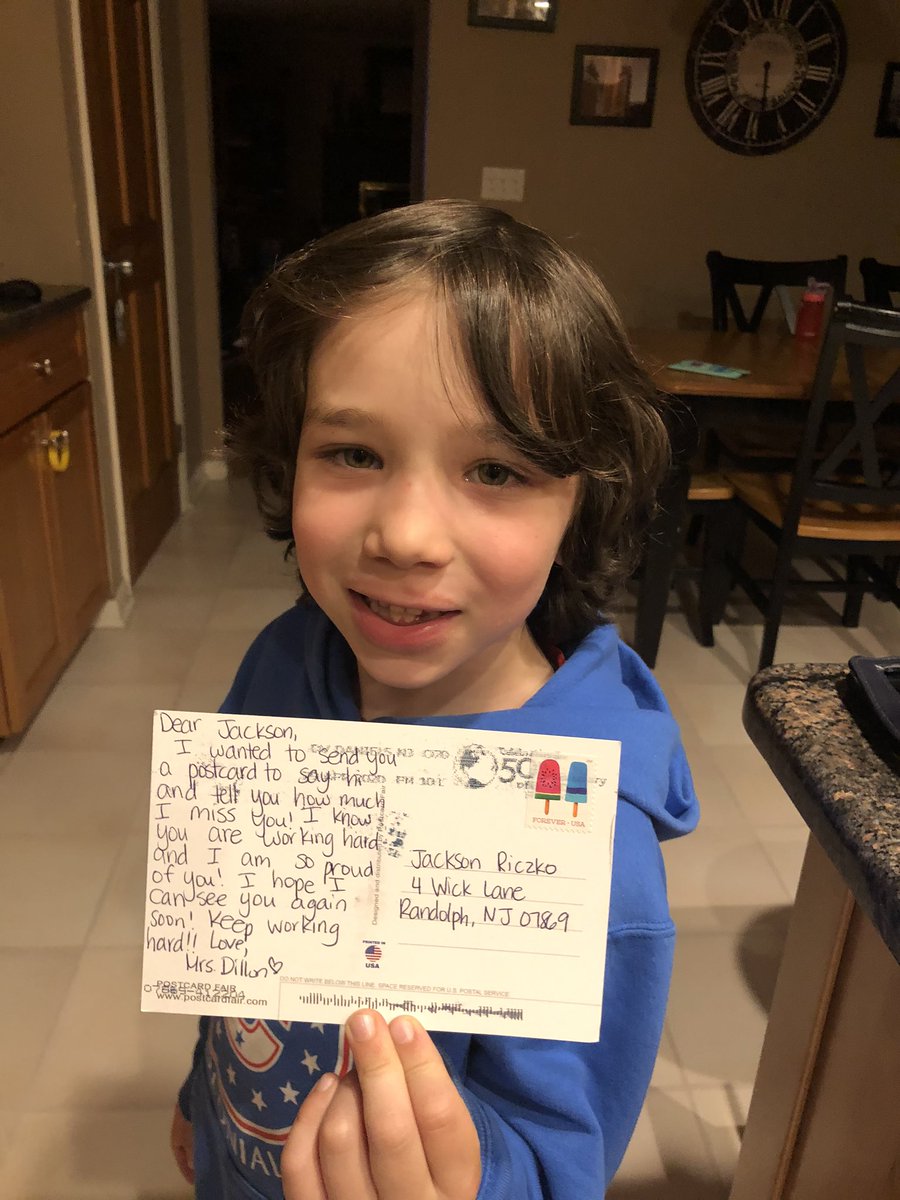 Dear Jackson,
I wanted to send you
a postcard to say hi
and tell you how much
I miss you! I know
you are working hard
and I am so proud
of you! I hope I
can see you again
soon! Keep working
hard!! Love,
Mrs. Dillon
POSTCARD FAIR
www.postcardfair.com
50
FOREVER • USA
Jackson Riczko
4 Wick Lane
Randolph, NJ 07869
PRINTED IN
USA
DO NOT WRITE BELOW THIS LINE. SPACE RESERVED FOR U.S. POSTAL SERVICE